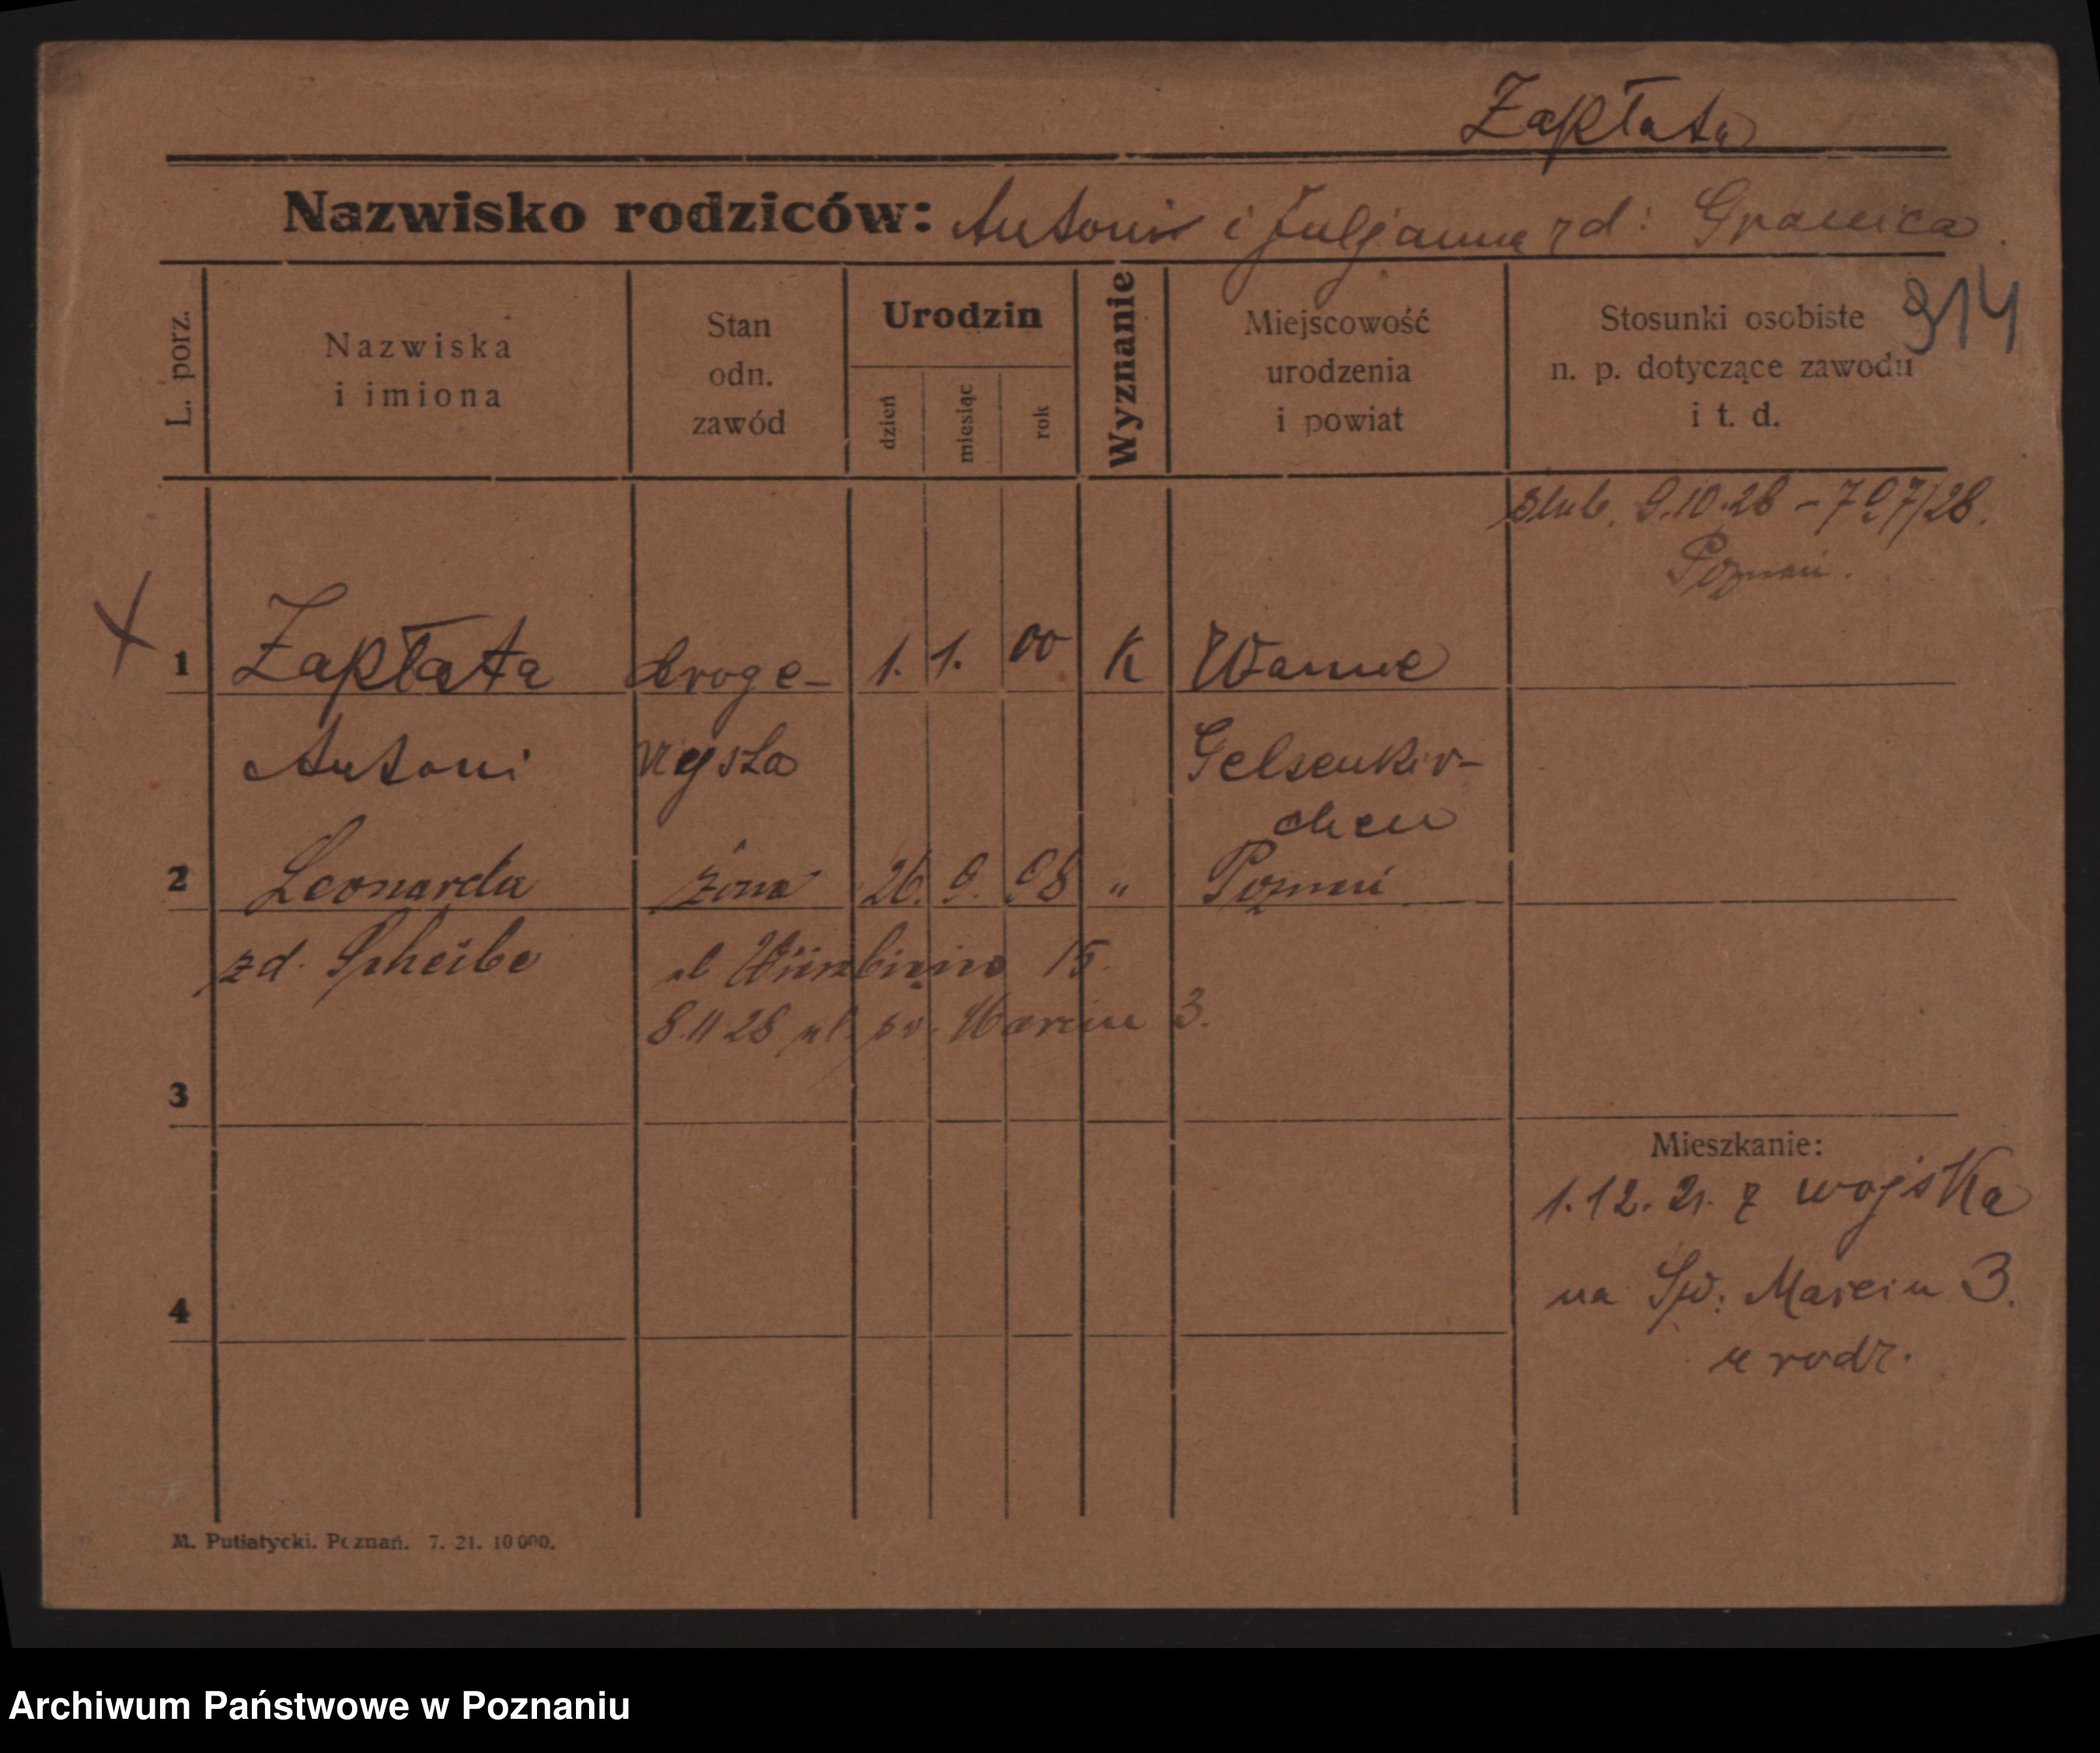 Zapłata
Nazwisko rodziców: Antoni i Juljanna zd: Granica.
914
L. porz.
Nazwiska
i imiona
Stan
odn.
zawód
Urodzin
dzień
miesiąc
rok
Wyznanie
Miejscowość
urodzenia
i powiat
Stosunki osobiste
n. p. dotyczące zawodu
i t. d.
ślub. 9.10.28 – 797/28.
Poznań.
1 Zapłata droge- 1. 1. 00 K Wanne
Antoni rzysta Gelsenkir-
chen
2 Leonarda żona 26. 9. 98 " Poznań
zd. Scheibe ul Wierzbięcice 15.
8.11 28 ul. św. Marcin 3.
3
Mieszkanie:
1.12.21. z wojska
na Św: Marcin 3.
u rodz.
4
M. Putiatycki. Poznań. 7. 21. 10000.
Archiwum Państwowe w Poznaniu